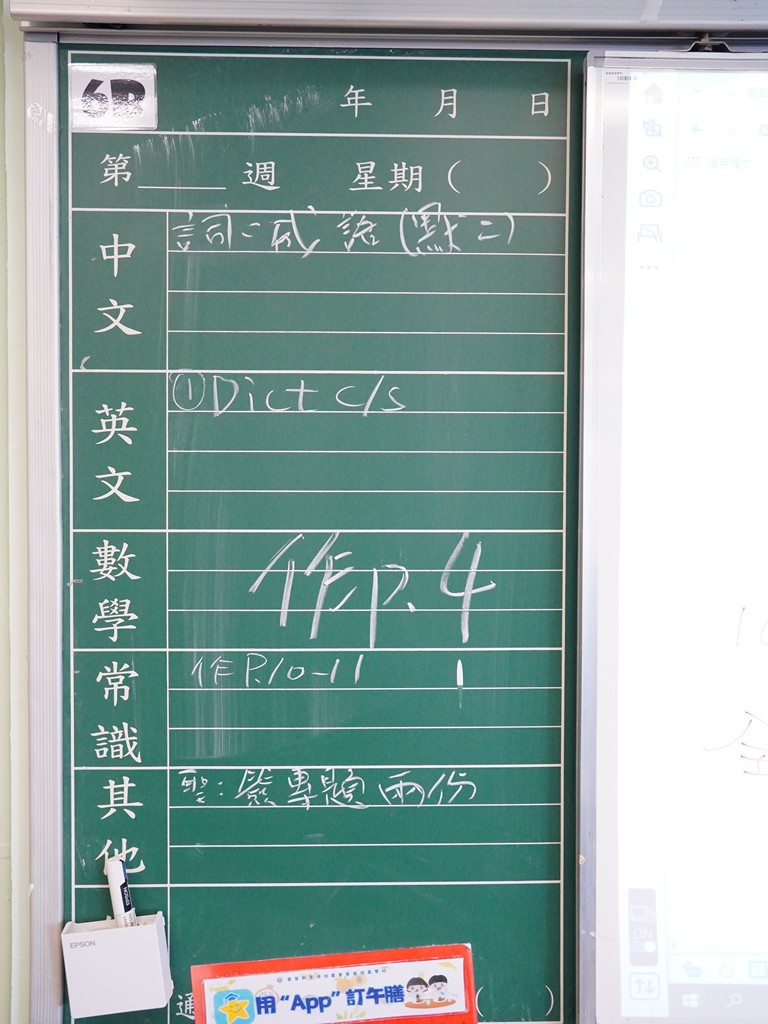 6B
年 月 日
第____週 星期( )
中文
詞:成語(默二)
英文
①Dict c/s
數學
作P.4
常識
作P.10-11
其他
聖:簽專題兩份
EPSON
用“App”訂午膳
通
( )
ON